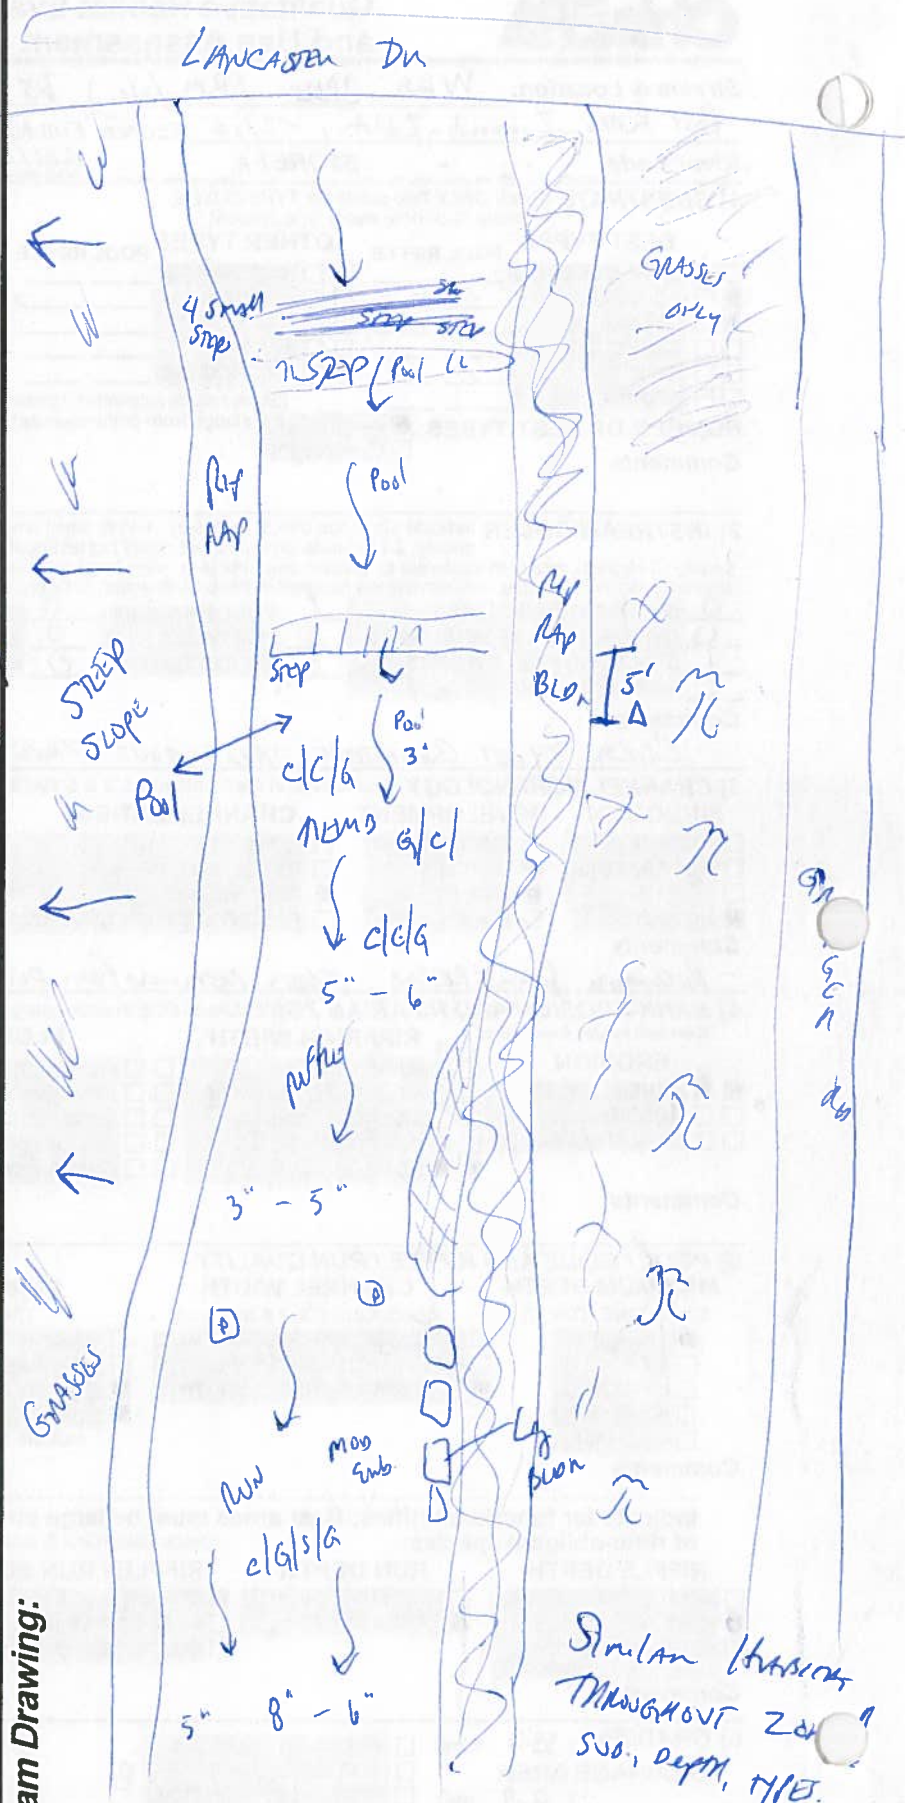 LANCASTER DR
GRASSES
ONLY
4 SMALL
STEPS
STEP
STEP
STEP / POOL
POOL
RIP
RAP
RIP
RAP
BLDR
5'
Δ
STEP
STEEP
SLOPE
POOL
POOL
3"
C/C/G
G/C/
C/C/G
5" - 6"
3" - 5"
P
P
GRASSES
RUN
MOD
EMB.
LG
BLDR
C/G/S/G
5"
8" - 6"
SIMILAR HABITAT
THROUGHOUT
SUB., DEPTH, TYPES.
am Drawing: